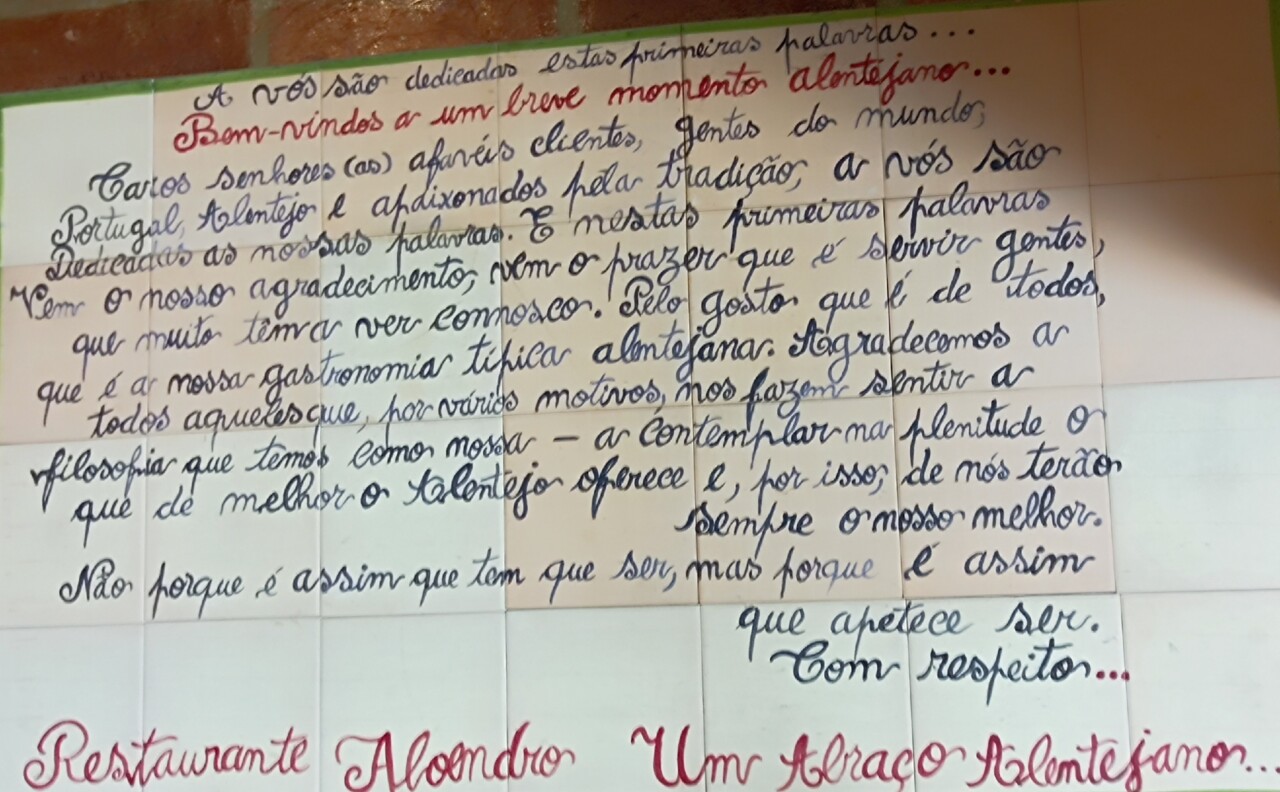 A vós são dedicadas estas primeiras palavras...
Bem-vindos a um breve momento alentejano...
Caros senhores (as) afavéis clientes, gentes do mundo,
Portugal, Alentejo e apaixonados pela tradição, a vós são
Dedicadas as nossas palavras. E nestas primeiras palavras
Vem o nosso agradecimento, vem o prazer que é servir gentes,
que muito têm a ver connosco. Pelo gosto que é de todos,
que é a nossa gastronomia típica alentejana. Agradecemos a
todos aqueles que, por vários motivos, nos fazem sentir a
filosofia que temos como nossa – a contemplar na plenitude o
que de melhor o Alentejo oferece e, por isso, de nós terão
sempre o nosso melhor.
Não porque é assim que tem que ser, mas porque é assim
que apetece ser.
Com respeito...
Restaurante Aloendro Um Abraço Alentejano...